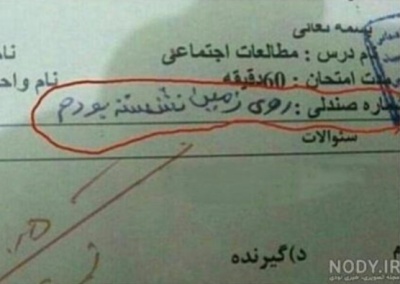 بسمه تعالی
نام درس : مطالعات اجتماعی
مدت امتحان : 60دقیقه
نام واحد
شماره صندلی : روی زمین نشسته بودم
سئوالات
د)گیرنده
NODY.IR